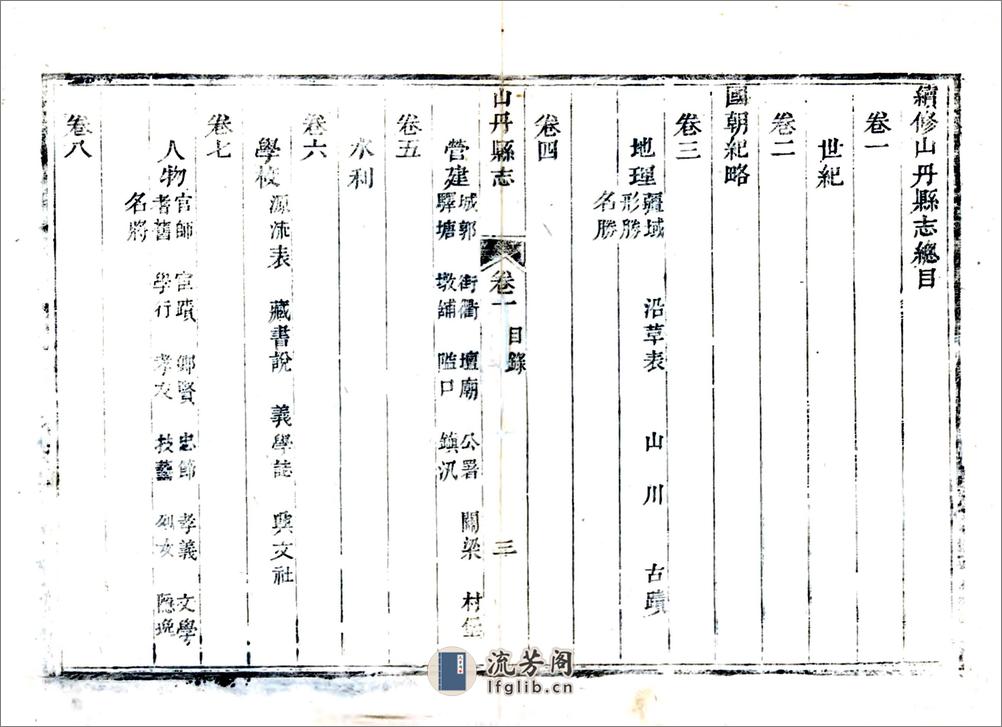 續修山丹縣志總目
卷一
世紀
卷二
國朝紀略
卷三
地理 疆域 沿革表 山川 古蹟
形勝
名勝
卷四
山丹縣志 卷一 目錄 三
營建 城郭 街衢 壇廟 公署 關梁 村堡
驛塘 墩鋪 隘口 鎮汛
卷五
水利
卷六
學校 源流表 藏書說 義學誌 興文社
卷七
人物 官師 宦蹟 鄉賢 忠節 孝義 文學
耆舊 學行 孝友 技藝 列女 隱逸
名將
卷八
流芳阁
lfglib.cn